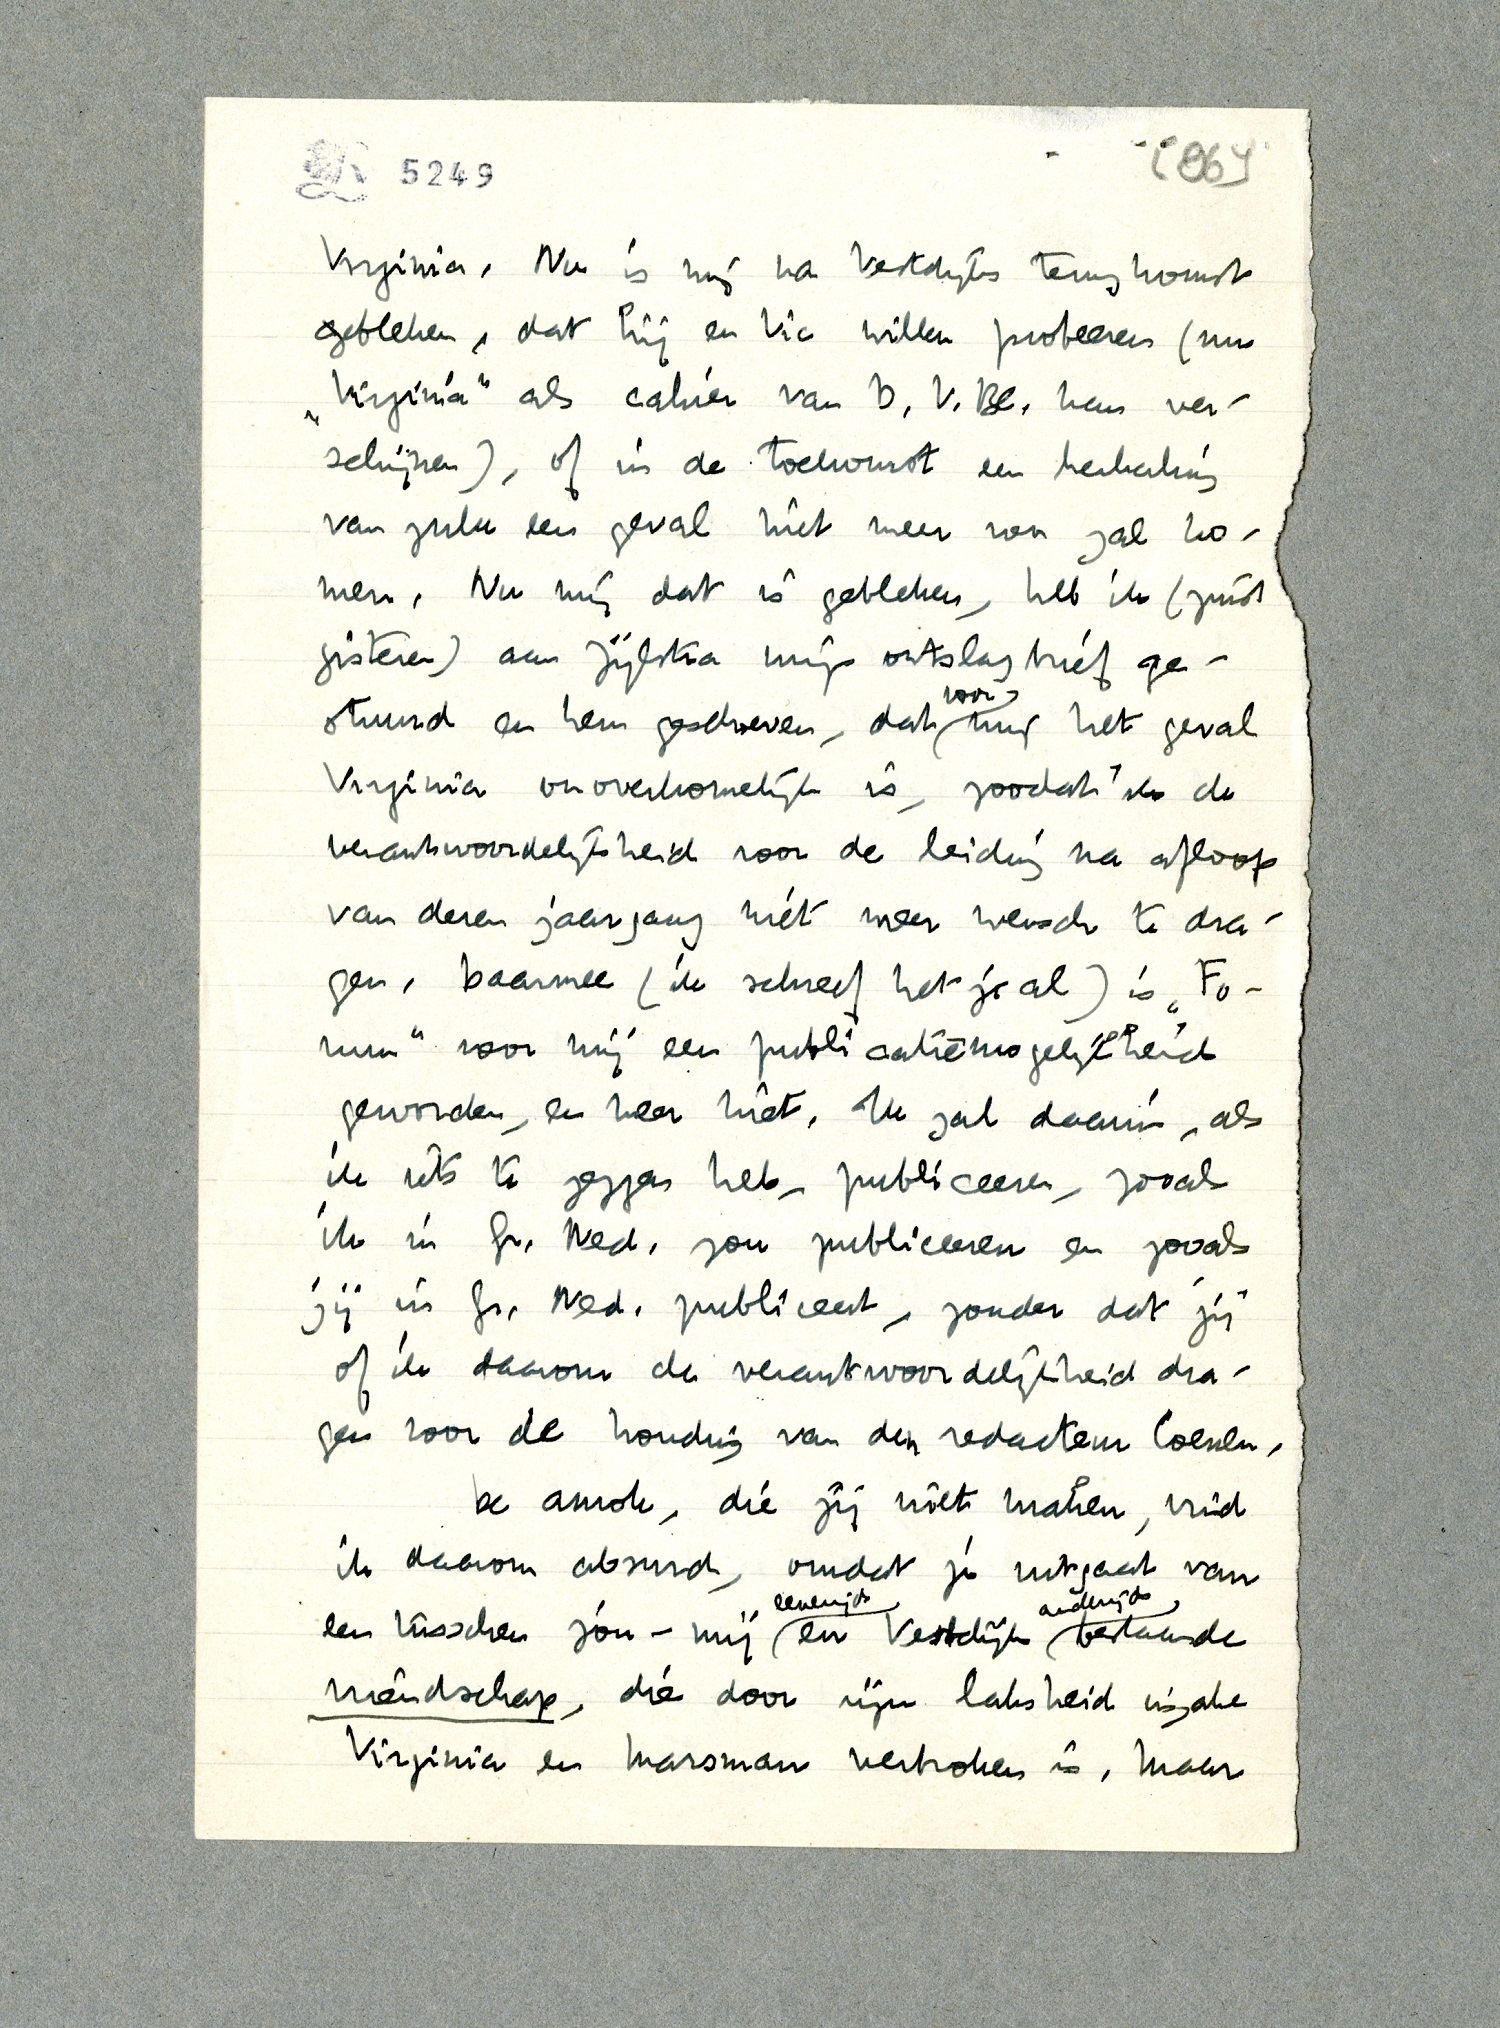 5249
Virginia. Nu is mij na Vestdijks terugkomst
gebleken, dat hij en Vic willen probeeren (nu
„Virginia” als cahier van D. V. Bl. kan ver-
schijnen), of in de toekomst een herhaling
van zulk een geval niet meer voor zal ko-
men. Nu mij dat is gebleken, heb ik (juist
gisteren) aan Zijlstra mijn ontslagbrief ge-
stuurd en hem geschreven, dat voor mij het geval
Virginia onoverkomelijk is, zoodat ik de
verantwoordelijkheid voor de leiding na afloop
van dezen jaargang niet meer wensch te dra-
gen. Daarmee (ik schreef het je al) is „Fo-
rum” voor mij een publicatiemogelijkheid
geworden, en meer niet. Ik zal daarin, als
ik iets te zeggen heb, publiceeren, zooals
ik in Gr. Ned. zou publiceeren en zooals
jij in Gr. Ned. publiceert, zonder dat jij
of ik daarom de verantwoordelijkheid dra-
gen voor de houding van den redacteur Coenen.
De amok, die jij wilt maken, vind
ik daarom absurd, omdat je uitgaat van
een tusschen jou-mij eenerzijds en Vestdijk anderzijds bestaande
vriendschap, die door zijn laksheid inzake
Virginia en Marsman verbroken is. Maar